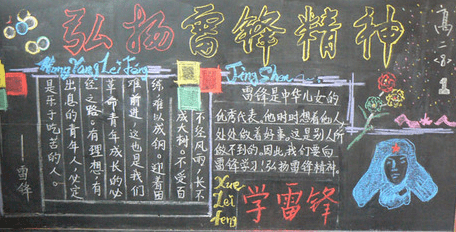 弘扬雷锋精神
Hong Yang Lei Feng
Jing Shen
不经风雨,长不
成大树。不受百
练,难以成钢。迎着困
难前进,这也是我们
革命青年成长的必
经之路。有理想,有
出息的青年人必定
是乐于吃苦的人。
——雷锋
雷锋是中华儿女的
优秀代表,他时时想着他人
处处做着好事。这是别人所
做不到的。因此我们要向
雷锋学习!弘扬雷锋精神.
Xue
Lei
feng
学雷锋